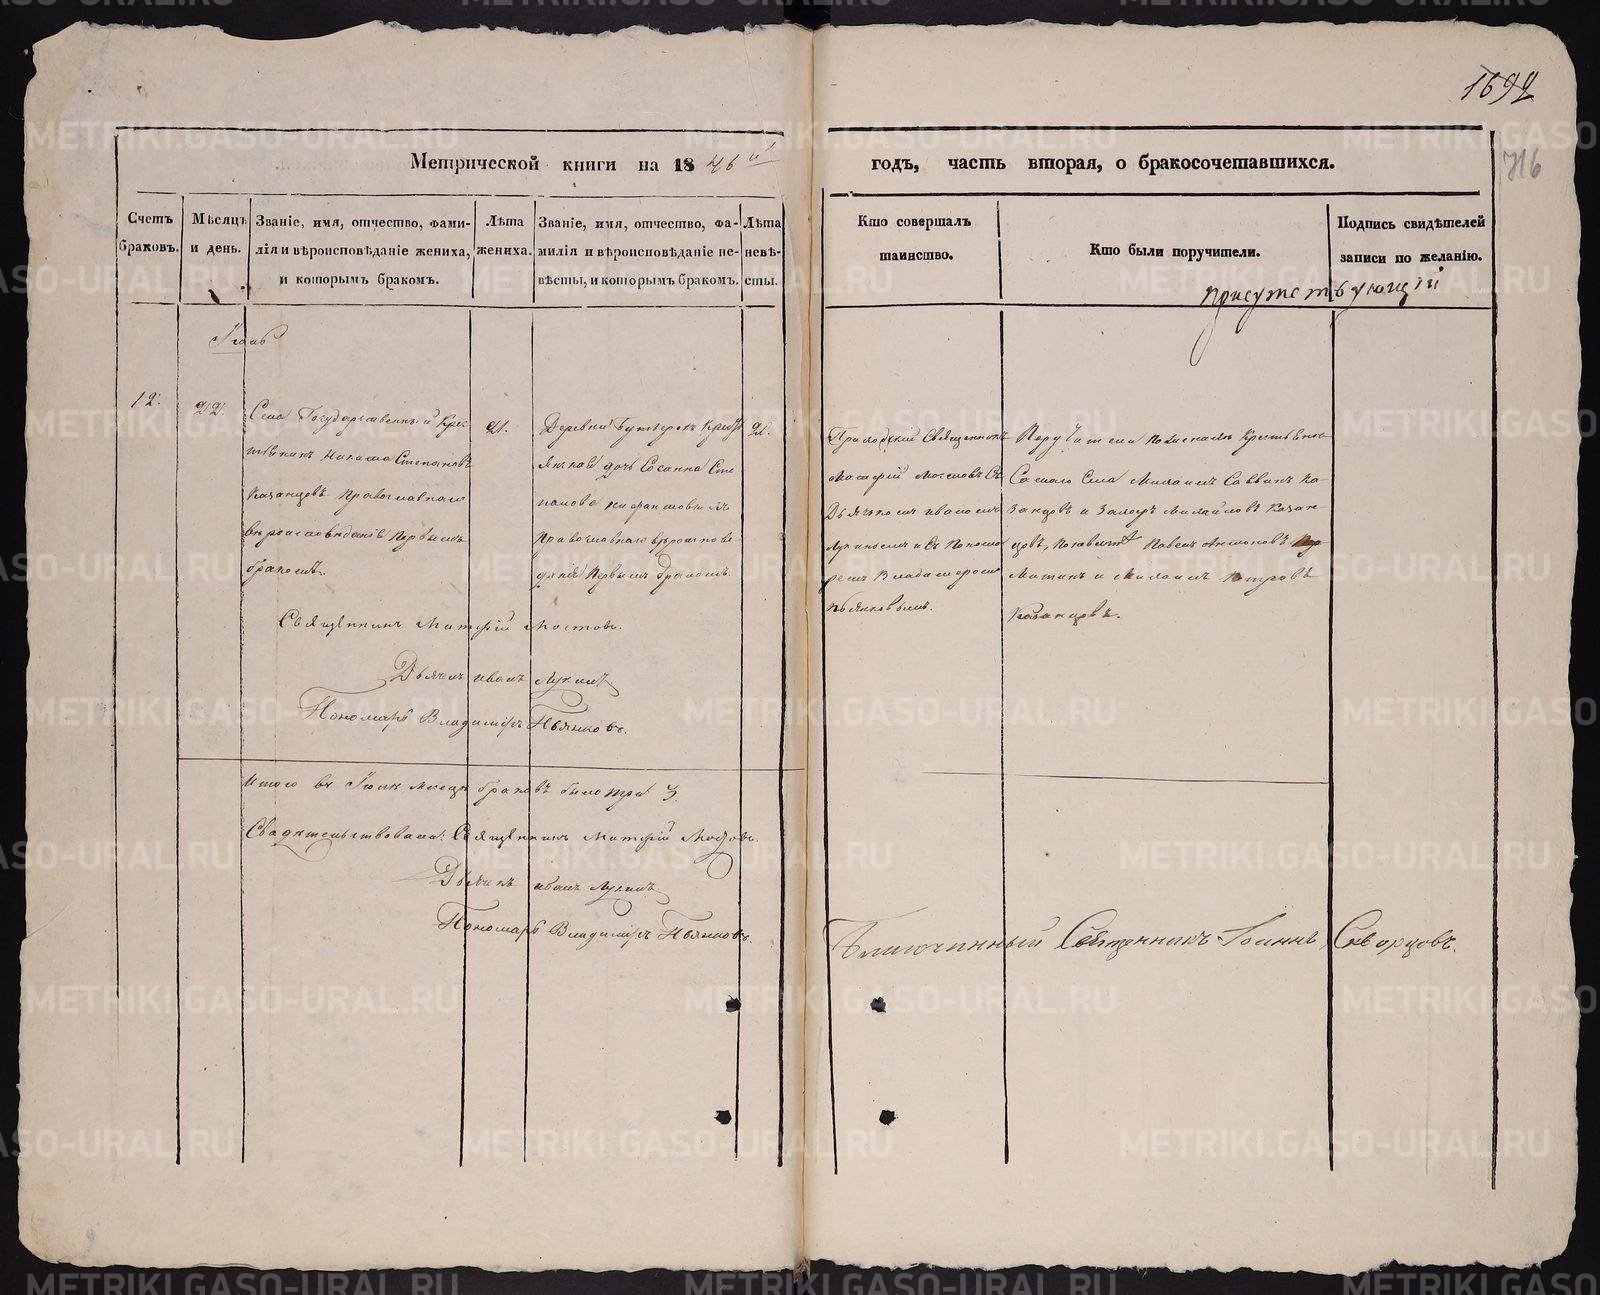 1699
716
Метрической книги на 1846й
годъ, часть вторая, о бракосочетавшихся.
Счетъ браковъ.
Мѣсяцъ и день.
Званіе, имя, отчество, фами-
лія и вѣроисповѣданіе жениха,
и которымъ бракомъ.
Лѣта
жениха.
Званіе, имя, отчество, фа-
милія и вѣроисповѣданіе не-
вѣсты, и которымъ бракомъ.
Лѣта
невѣ-
сты.
Кто совершалъ
таинство.
Кто были поручители.
Подпись свидѣтелей
записи по желанію.
присутствующій
12.
22.
Села Государственный Крес
тьянинъ Степановъ
Казанцовъ Православнаго
вѣроисповѣданія первымъ
бракомъ.
21.
Деревни Крестья
янская дочь Сте
панова
Православнаго вѣроиспове
данія первымъ бракомъ.
21.
Приходскій Священникъ
Мостовъ Съ
Дьячкомъ Иваномъ
Лукинымъ и Съ Понома
ремъ Владимеромъ
Пьянковымъ.
Поручатели по женихѣ Крестьяне
Села Михаилъ Саввинъ Ка-
занцовъ и Михайловъ Казан-
цовъ, по невѣстѣ Павелъ Антоновъ
и Михаилъ Петровъ
Казанцовъ.
Священникъ Мостовъ.
Дьячекъ Иванъ Лукинъ
Пономарь Владимиръ Пьянковъ.
Итого въ месяцѣ браковъ было три 3.
Свидѣтельствовали: Священникъ Мостовъ.
Дьячекъ Иванъ Лукинъ
Пономарь Владимиръ Пьянковъ.
Благочинный Священникъ Іоаннъ Скворцовъ.
METRIKI.GASO-URAL.RU